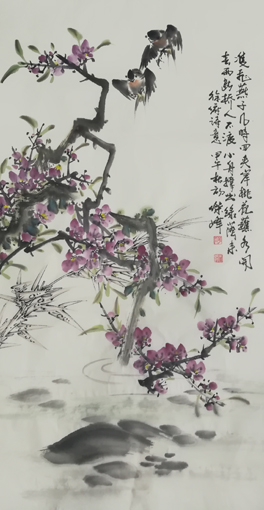 雙飛燕子几時回夾岸桃花蘸水開
春雨断橋人不渡小舟撑出緑蔭来
徐俯詩意甲午秋